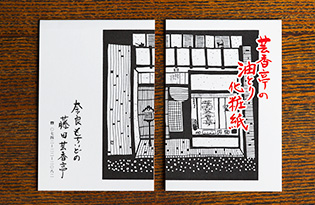 芸香亭の
油とり
化粧紙
奈良もちいどの
藤田芸香亭
芸香亭